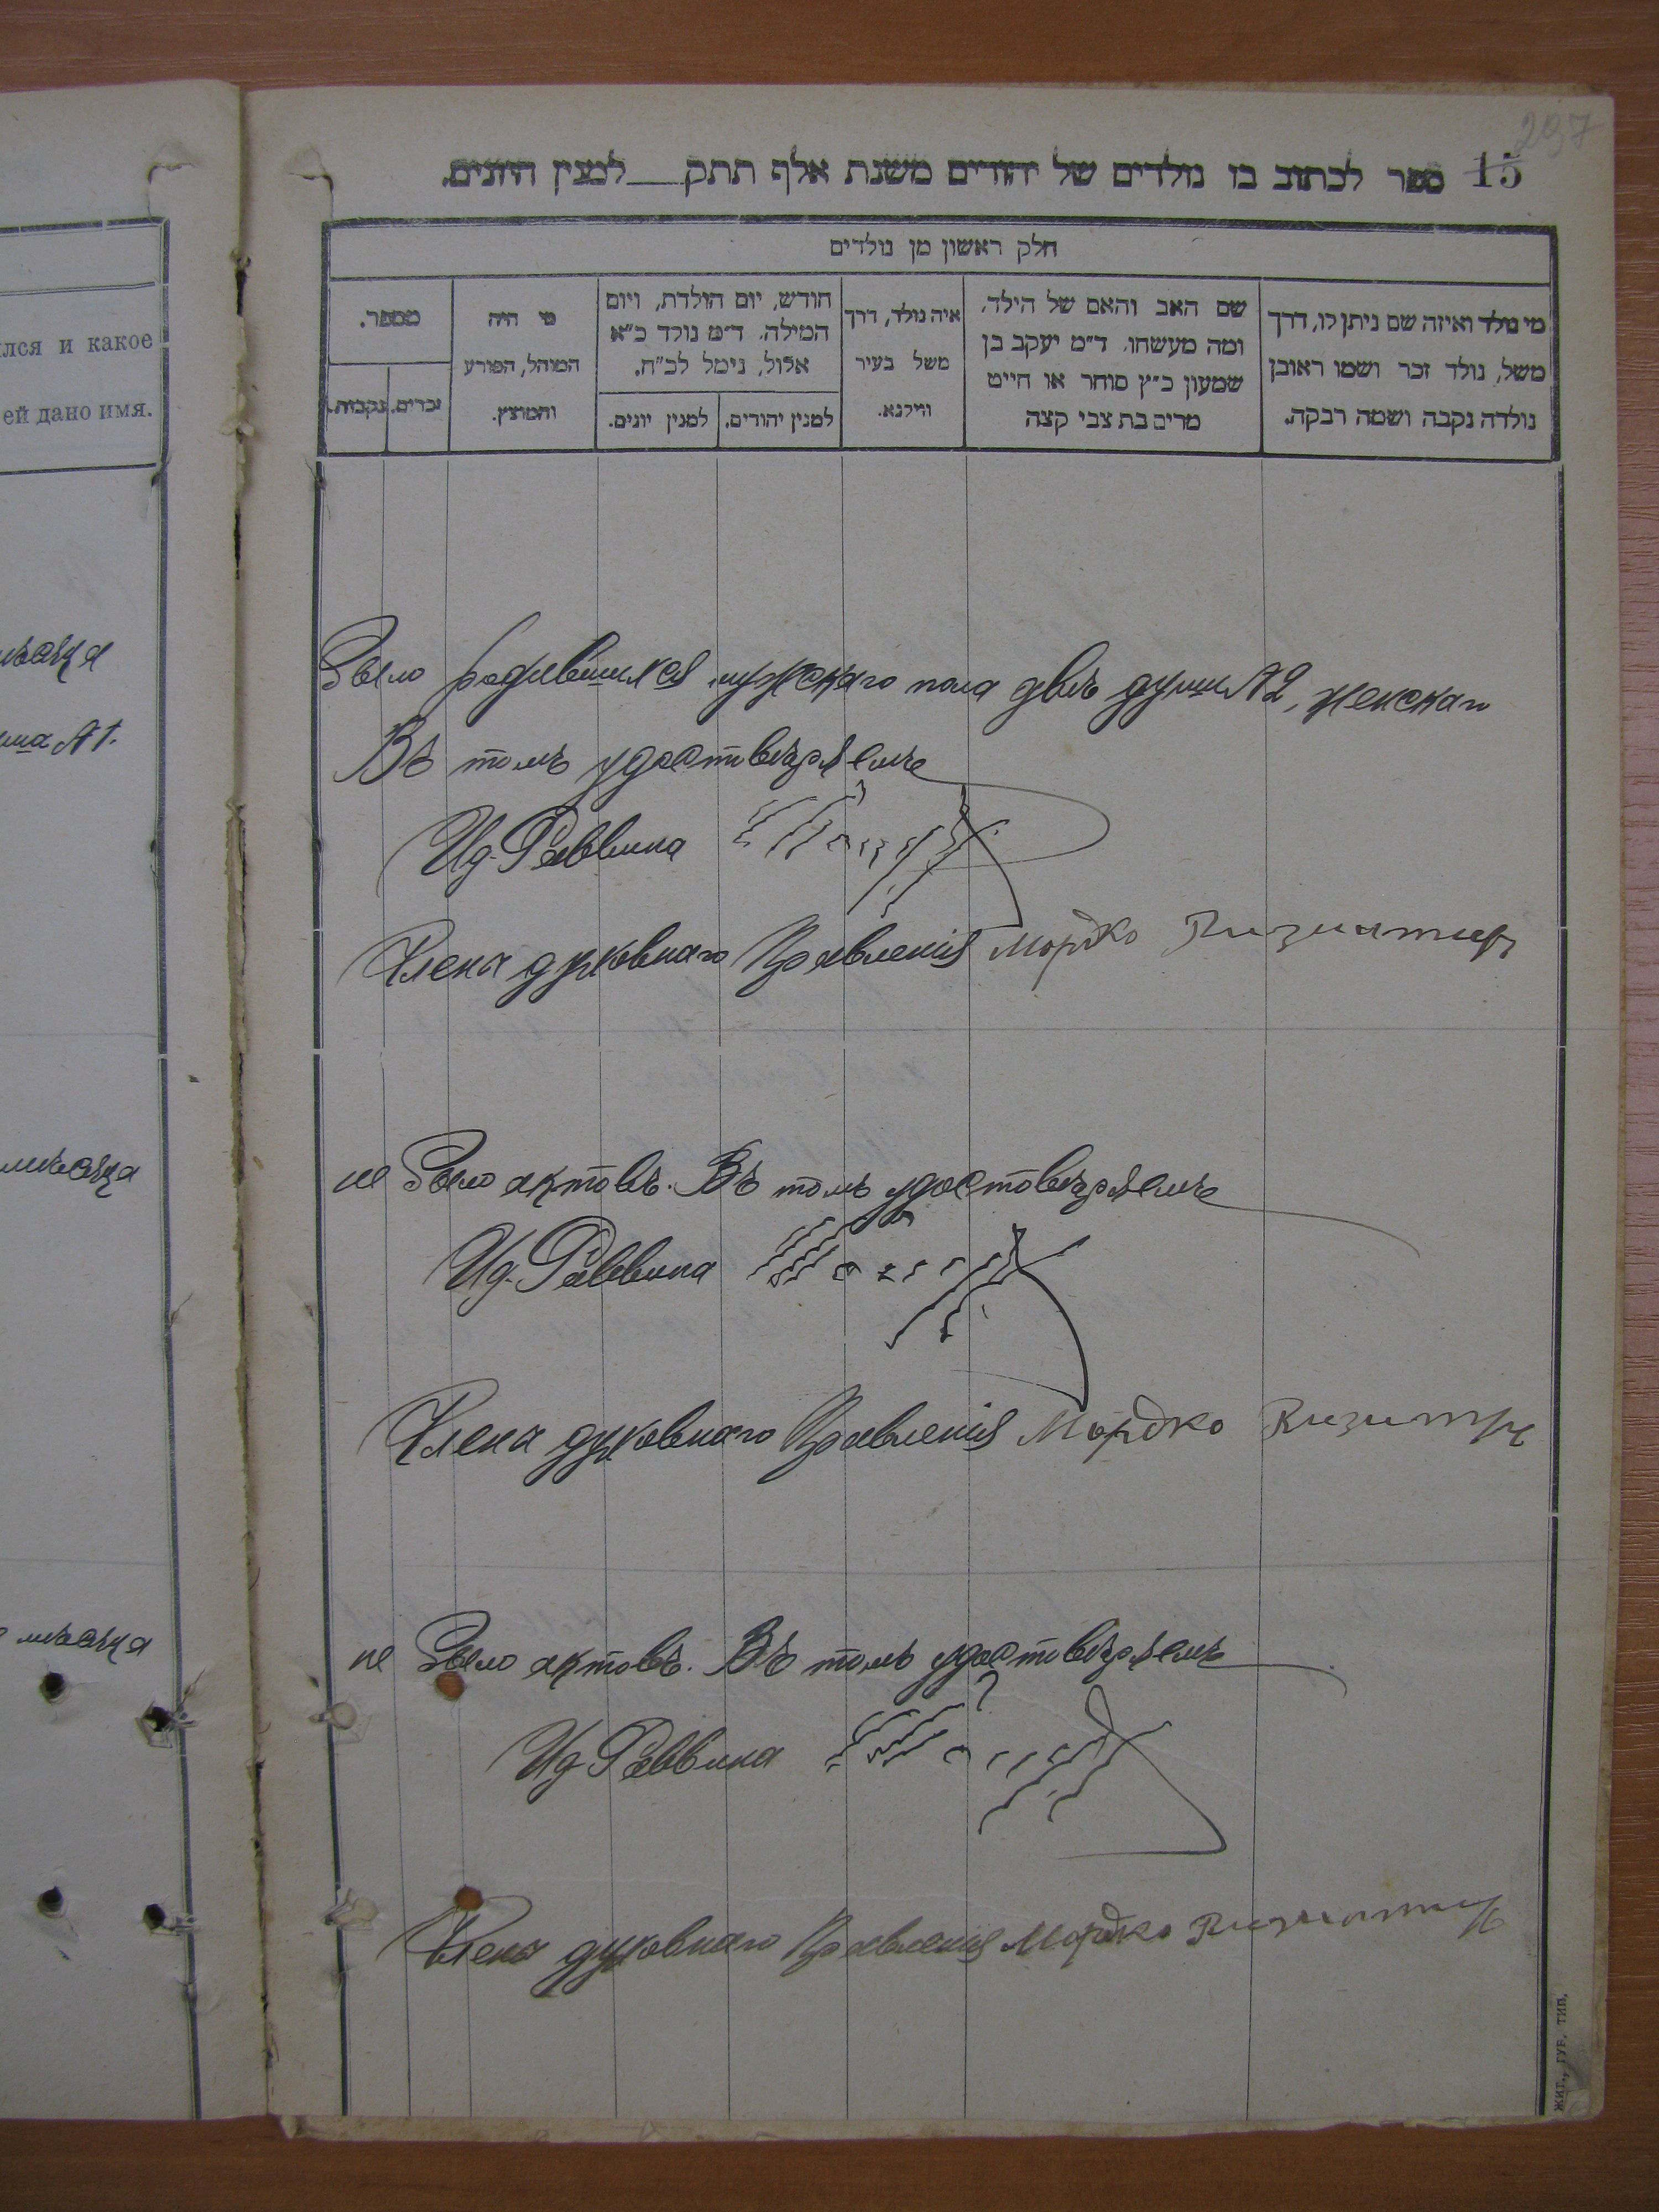 297
15
ספר לכתוב בו נולדים של יהודים משנת אלף תתק___למנין היונים.
חלק ראשון מן נולדים
מי נולד ואיזה שם ניתן לו, דרך
משל, נולד זכר ושמו ראובן
נולדה נקבה ושמה רבקה.
שם האב והאם של הילד,
ומה מעשהו. ד״מ יעקב בן
שמעון כ״ץ סוחר או חייט
מרים בת צבי קצה
איה נולד, דרך
משל בעיר
ווילנא.
חודש, יום הולדת, ויום
המילה. ד״מ נולד כ״א
אלול, נימל לכ״ח.
למנין יהודים.
למנין יונים.
מי היה
המוהל, הפורע
והמוצץ.
מספר.
זכרים.
נקבות.
лся и какое
ей дано имя.
мѣсяца
ша № 1.
мѣсяца
мѣсяца
Было родившихся мужскаго пола двѣ души № 2, женскаго
Въ томъ удостовѣряемъ
Ид. Раввина
Члена духовнаго Правленія Мордко Визиатир
не было актовъ. Въ томъ удостовѣряемъ
Ид. Раввина
Члена духовнаго Правленія Мордко
не было актовъ. Въ томъ удостовѣряемъ
Ид Раввина
Члена духовнаго Правленія Мордко
ЖИТ., ГУБ. ТИП.